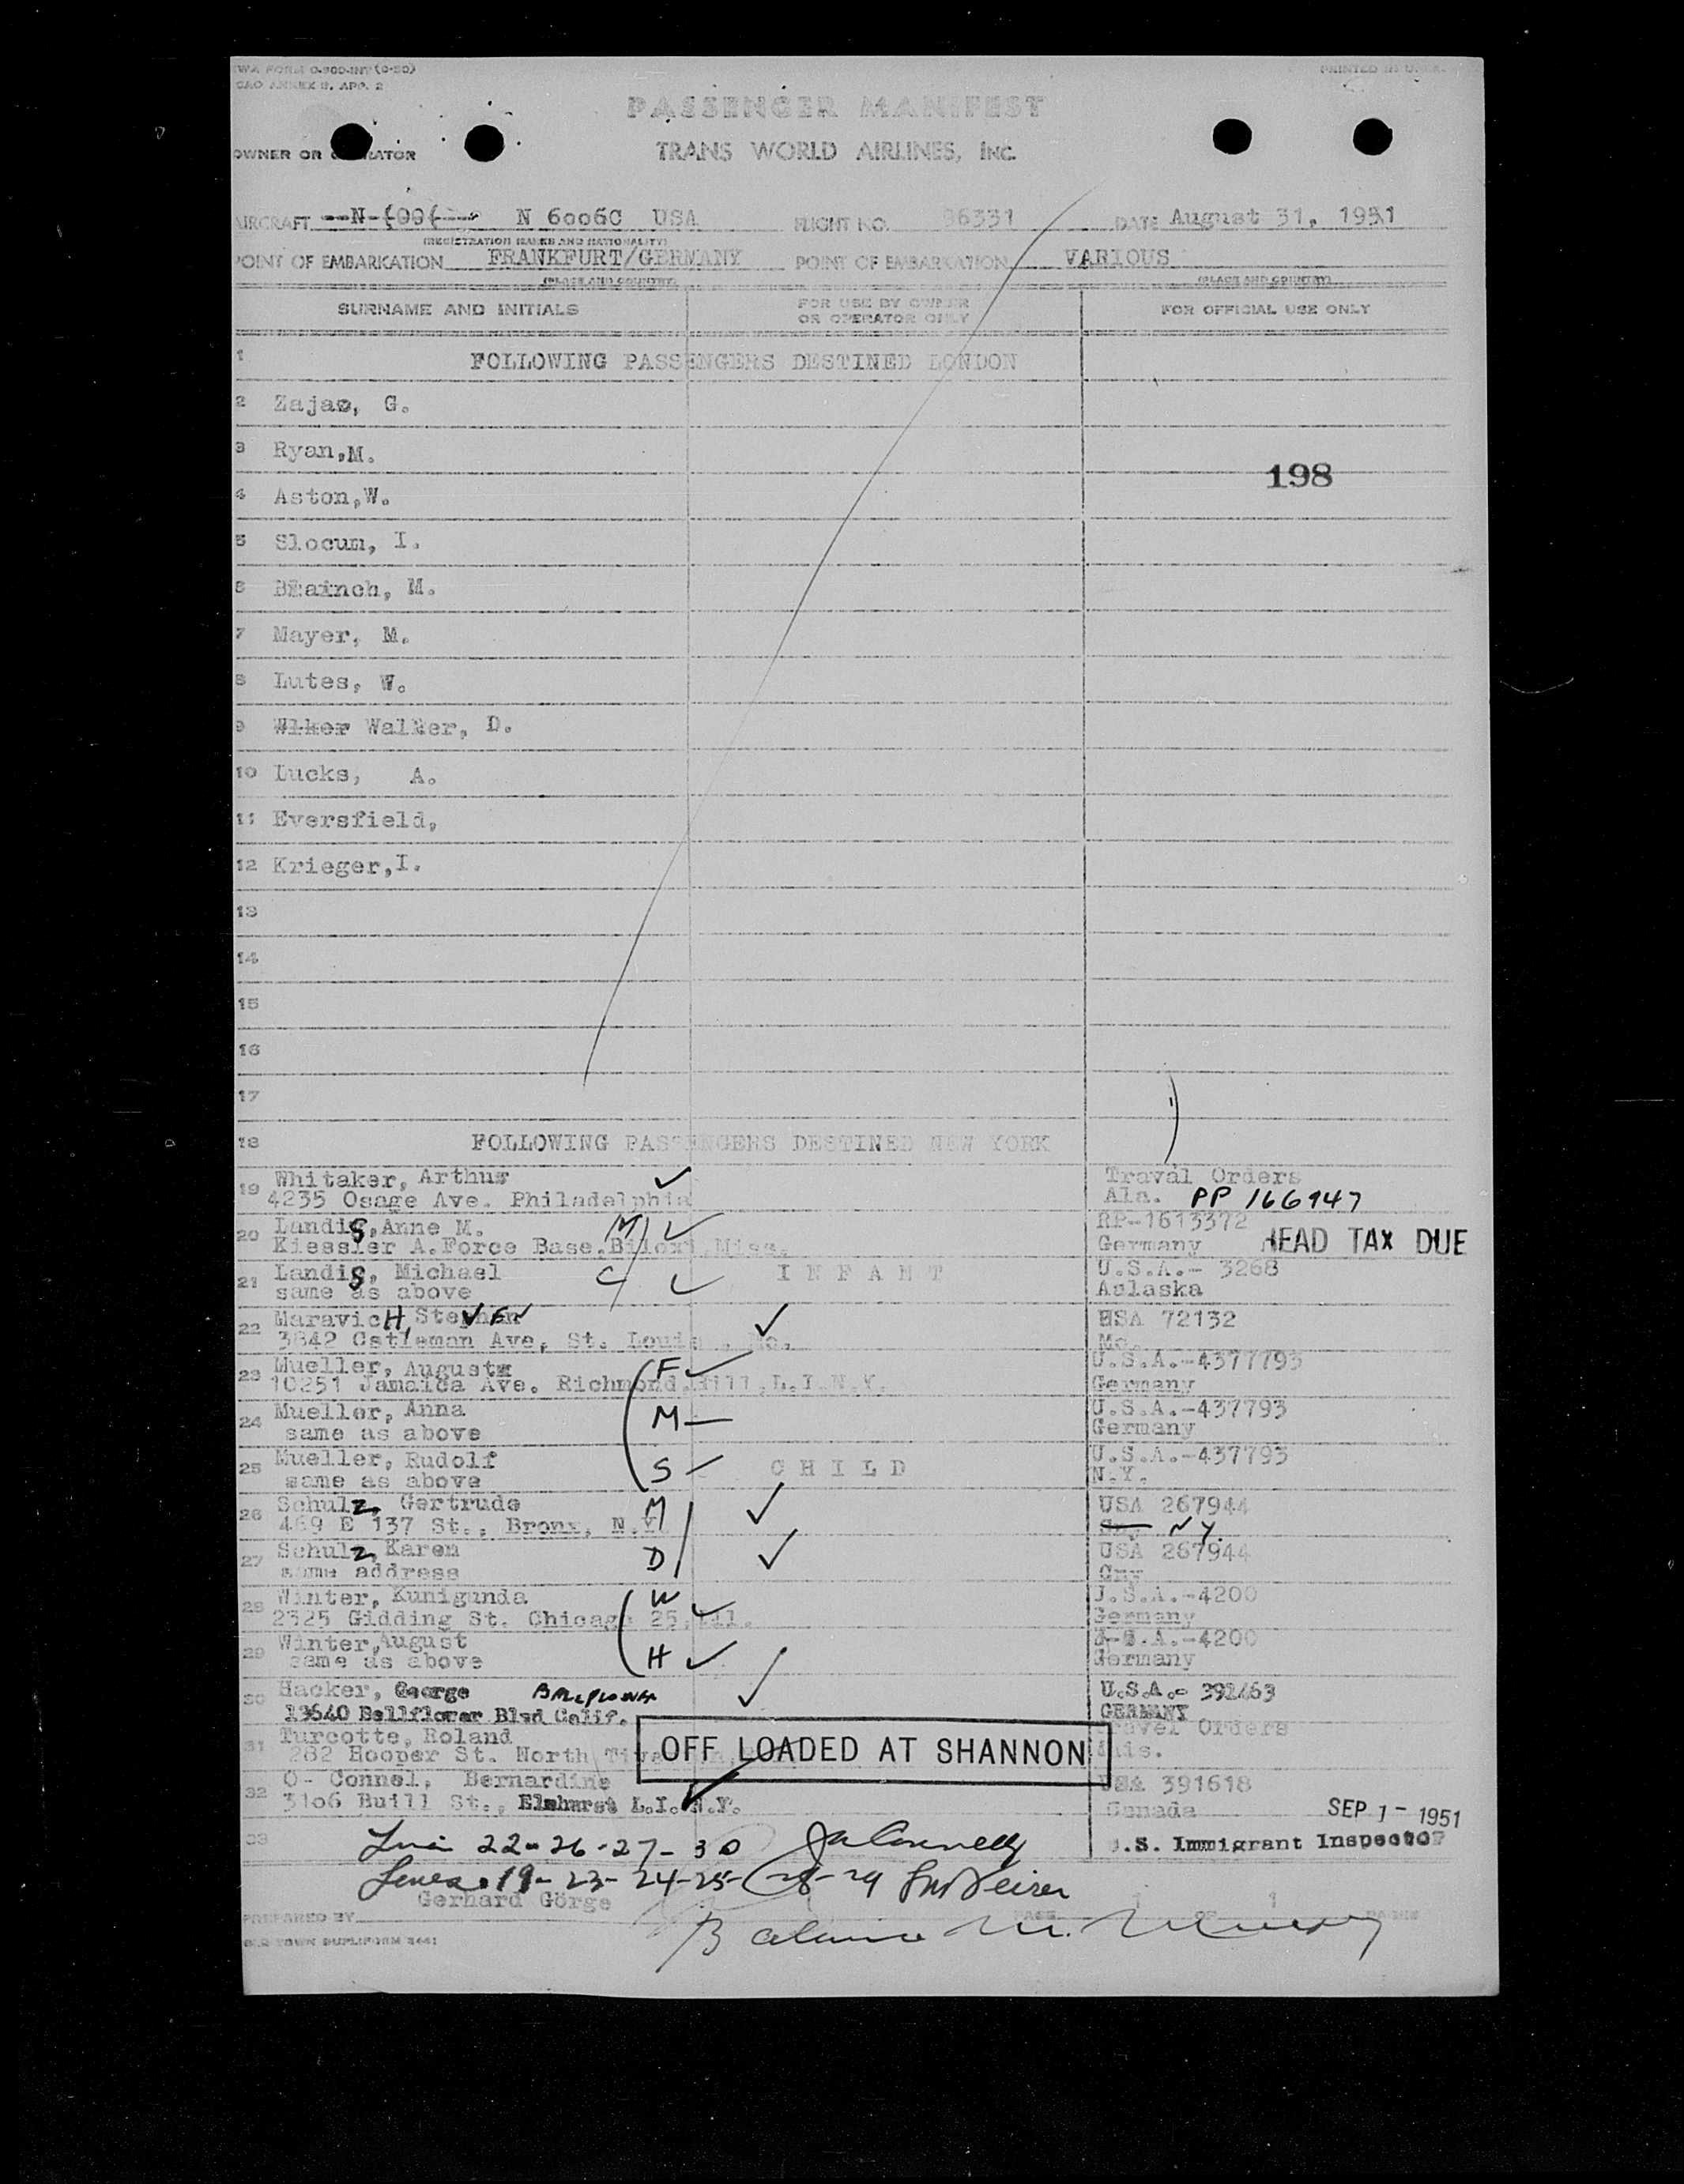 TWA FORM 0-900-INT (0-50) PRINTED IN U.S.A.
ICAO ANNEX 9, APP. 2
PASSENGER MANIFEST
OWNER OR OPERATOR TRANS WORLD AIRLINES, INC.
AIRCRAFT N 6006C USA FLIGHT NO. 96331 DATE August 31, 1951
(REGISTRATION MARKS AND NATIONALITY)
POINT OF EMBARKATION FRANKFURT/GERMANY POINT OF EMBARKATION VARIOUS
(PLACE AND COUNTRY) (PLACE AND COUNTRY)
SURNAME AND INITIALS FOR USE BY OWNER OR OPERATOR ONLY FOR OFFICIAL USE ONLY
1 FOLLOWING PASSENGERS DESTINED LONDON
2 Zajac, G.
3 Ryan,M.
198
4 Aston,W.
5 Slocum, I.
6 M.
7 Mayer, M.
8 Lutes, W.
9 Wlker Walker, D.
10 Lucks, A.
11 Eversfield,
12 Krieger,I.
13
14
15
16
17
18 FOLLOWING PASSENGERS DESTINED NEW YORK
19 Whitaker, Arthur ✓ Traval Orders
4235 Osage Ave. Philadelphia Ala. PP 166947
20 Landis, Anne M. M ✓ RP-1613372
Kiessler A.Force Base.Biloxi,Miss. Germany HEAD TAX DUE
21 Landis, Michael C ✓ INFANT U.S.A.- 3268
same as above Aslaska
22 MaravicH, Stephen ✓ USA 72132
3842 Castleman Ave, St. Louis, Mo. Mo.
23 Mueller, August F ✓ U.S.A.-4377793
10251 Jamaica Ave. Richmond.Hill,L.I.N.Y. Germany
24 Mueller, Anna M — U.S.A.-437793
same as above Germany
25 Mueller, Rudolf S CHILD U.S.A.-437793
same as above N.Y.
26 Schulz, Gertrude M ✓ USA 267944
469 E 137 St., Bronx, N.Y. NY.
27 Schulz, Karen D ✓ USA 267944
same address Gny
28 Winter, Kunigunda W ✓ U.S.A.-4200
2325 Gidding St. Chicago 25,Ill. Germany
29 Winter,August H ✓ U.S.A.-4200
same as above Germany
30 Hacker, George ✓ U.S.A.- 391463
13640 Bellflower Blvd Calif. GERMANY
31 Turcotte, Roland Travel Orders
282 Hooper St. North
OFF LOADED AT SHANNON
32 O- Connel, Bernardine USA 391618
3106 Buill St., Elmhurst L.I. N.Y. ✓ Canada SEP 1- 1951
33 22-26-27-30 U.S. Immigrant Inspector
Lines 19-23-24-25-28-29
Gerhard Görge
PREPARED BY PAGE 1 OF 1 PAGES
OLD TOWN DUPLIFORM